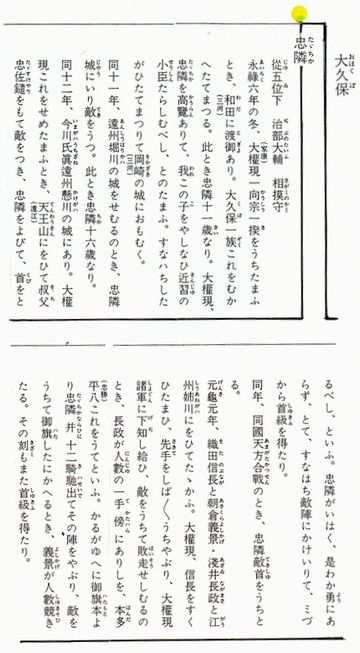 大久保
忠隣
從五位下 治部大輔 相摸守
永祿六年の冬、大權現一向宗一揆をうちたまふ
とき、和田に渡御あり。大久保一族これをむか
へたてまつる。此とき忠隣十一歳なり。大權現、
忠隣を高覽ありて、我この子をやしなひ近習の
小臣たらしむべし、とのたまふ。すなハちした
がひたてまつりて岡崎の城におもむく。
同十一年、遠州堀川の城をせむるのとき、忠隣
城にいり敵をうつ。此とき忠隣十六歳なり。
同十二年、今川氏眞遠州懸川の城にあり。大權
現これをせめたまふとき、天王山にをひて叔父
忠佐鑓をもて敵をつき、忠隣をよびて、首をと
るべし、といふ。忠隣がいはく、是わか勇にあ
らず、とて、すなはち敵陣にかけいりて、ミづ
から首級を得たり。
同年、同國天方合戰のとき、忠隣敵首をうちと
る。
元龜元年、織田信長と朝倉義景 淺井長政と江
州姉川にをひてたゝかふ。大權現、信長をすく
ひたまひ、先手をしば〳〵うちやぶり、大權現
諸軍に下知し給ひ、敵をうちて敗走せしむるの
とき、長政が人數の一手傍にありしを、本多
平八これをうてといふ。かるがゆへに御旗本よ
り忠隣并十二騎馳出てその陣をやぶり、敵を
うちて御旗したにかへるとき、義景が人數競き
たる。その刻もまた首級を得たり。